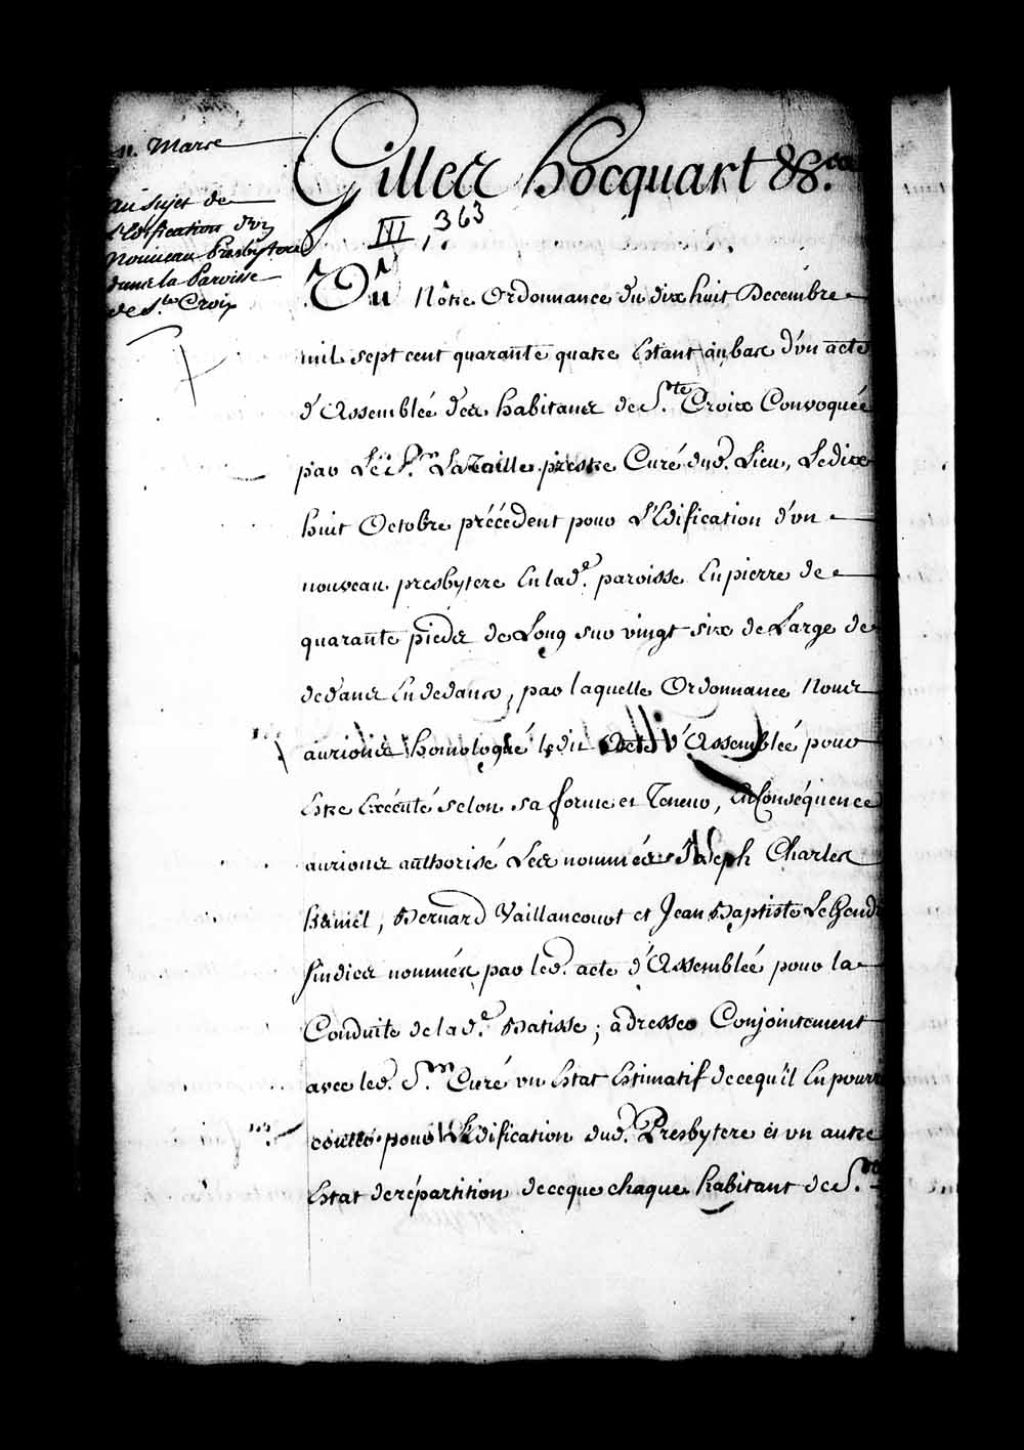 11. Mars
au sujet de
l'Edification d'un
nouveau Presbytere
dans la Paroisse
de Ste Croix
Gilles Hocquart &c.a
III, 363
Vû Nôtre Ordonnance du dix huit Decembre
mil sept cent quarante quatre Estant au bas d'un acte
d'Assemblée des habitans de Ste Croix Convoquée
par Le Sr. La Taille prestre Curé dud. Lieu, Le dix
huit Octobre précédent pour L'Edification d'un
nouveau presbytere En lade. paroisse En pierre de
quarante pieds de Long sur vingt six de Large de
dedans En dedans, par laquelle Ordonnance Nous
aurions homologué ledit Acte d'Assemblée pour
Estre Exécuté selon sa forme et Teneur, En Conséquence
aurions authorisé Les nommés Joseph Charles
Hamel, Bernard Vaillancourt et Jean Baptiste Le Gendr
Sindics nommés par led. acte d'Assemblée pour la
Conduite de lade. Batisse; adresser Conjointement
avec led. Sr. Curé un Estat Estimatif de ce qu'il En pourra
couter pour L'Edification dud. Presbytere et un autre
Estat de répartition de ce que chaque habitant de Ste